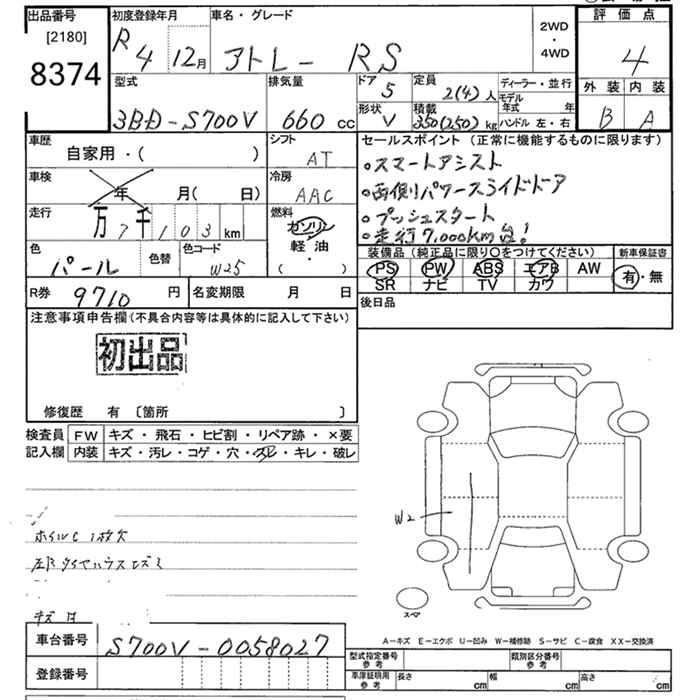 出品番号
[2180]
8374
初度登録年月
R 4 12月
車名・グレード
アトレー RS
2WD
・
4WD
評価点
4
外装 内装
B A
型式
3BD-S700V
排気量
660 cc
ドア
5
定員
2(4)人
形状
V
積載
350(250)kg
ディーラー・並行
モデル
年式 年
ハンドル 左・右
車歴
自家用・( )
シフト
AT
車検
年 月( 日)
冷房
AAC
走行
万7千103km
燃料
ガソリン
軽・油
( )
色
パール
色替
色コード
W25
R券 9710 円
名変期限 月 日
セールスポイント(正常に機能するものに限ります)
○スマートアシスト
○両側パワースライドドア
○プッシュスタート
○走行7,000km台!
装備品(純正品に限り○をつけてください)
PS PW ABS エアB AW
SR ナビ TV カワ
新車保証書
有・無
後日品
注意事項申告欄(不具合内容等は具体的に記入して下さい)
初出品
修復歴 有 〔箇所 〕
検査員
記入欄
FW キズ・飛石・ヒビ割・リペア跡・×要
内装 キズ・汚レ・コゲ・穴・スレ・キレ・破レ
ホイルC 1枚欠
左F タイヤハウスヒズミ
W2
スペア
A-キズ E-エクボ U-凹み W-補修跡 S-サビ C-腐食 XX-交換済
車台番号
S700V-0058027
登録番号
型式指定番号
参考
類別区分番号
参考
車庫証明用
参考
長さ cm
幅 cm
高さ cm